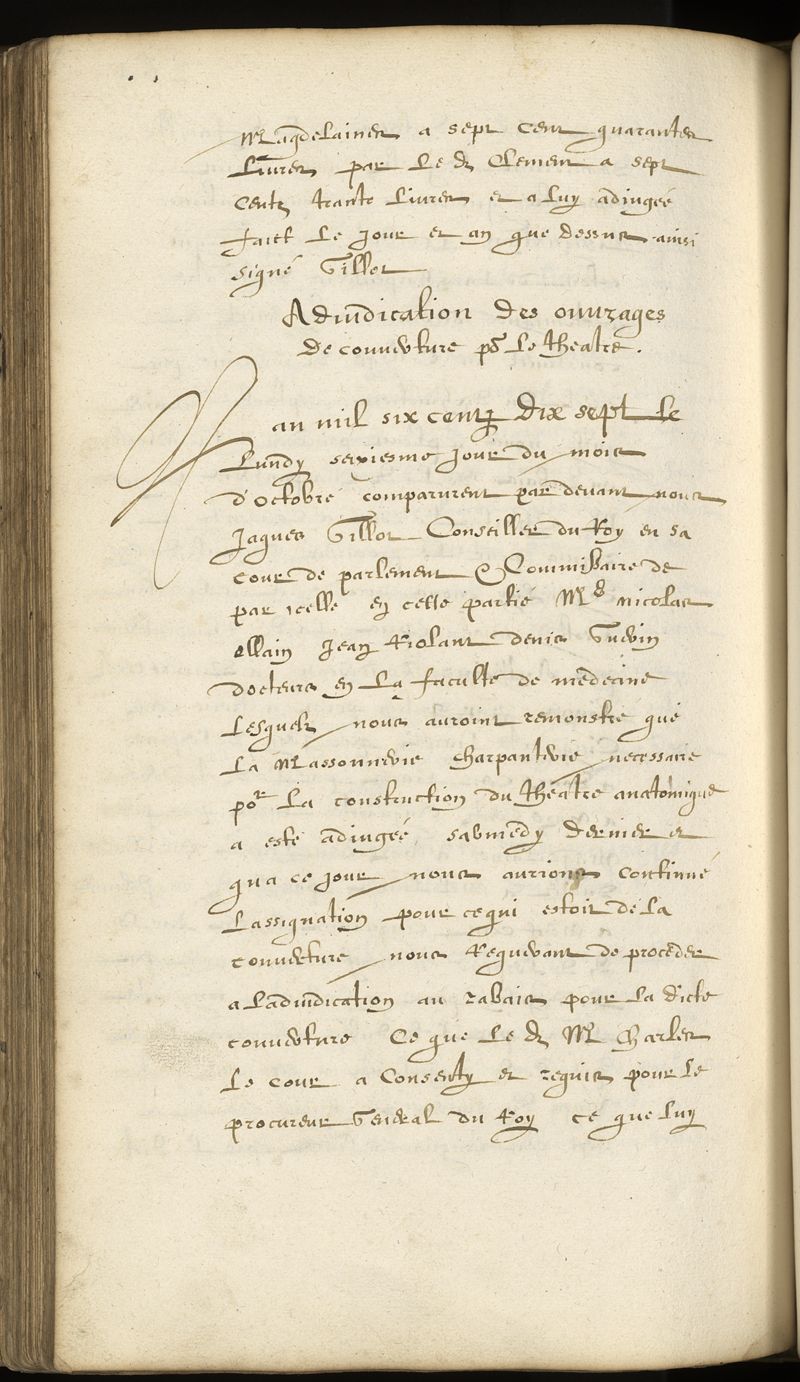 Magdelaines a sept cent quarantes
Livres par le d Clement a sept
Centz trante livres et a luy adiugée
faict le jour et an que dessus ainsi
signé Gillot
Adiudication des ouurages
de couuerture po le theatre.
Lan mil six centz dix sept le
Lundy seziesme jour du mois
d'octobre comparurent par deuant nous
Jaques Gillot Conseiller du Roy en sa
cour de parlement & Commissaire de
par icelle en ceste partie Me nicolas
ellain Jean Riolant denis Guerin
docteurs en la faculte de medecine
Lesquelz nous auroint remonstre que
La Massonnerie charpanterie necessaire
por la construction du theatre anatomique
a este adiugée sabmedy dernier et
qua ce jour nous aurions continué
Lassignation pour ce qui estoit de la
couuerture nous requerant de proceder
a Ladiudication au rabais pour la dicte
couuerture Ce que le d M Charles
Le cour a Consenty et requis pour le
procureur General du Roy ce que luy